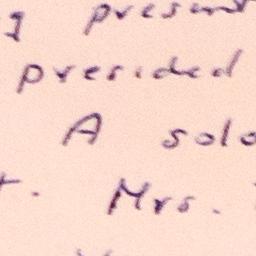 g present
presided
A solo
t. Mrs.